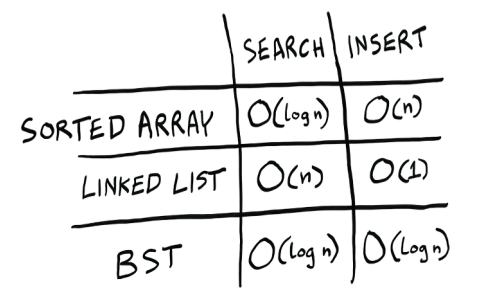 SEARCH INSERT
SORTED ARRAY O(log n) O(n)
LINKED LIST O(n) O(1)
BST O(log n) O(log n)